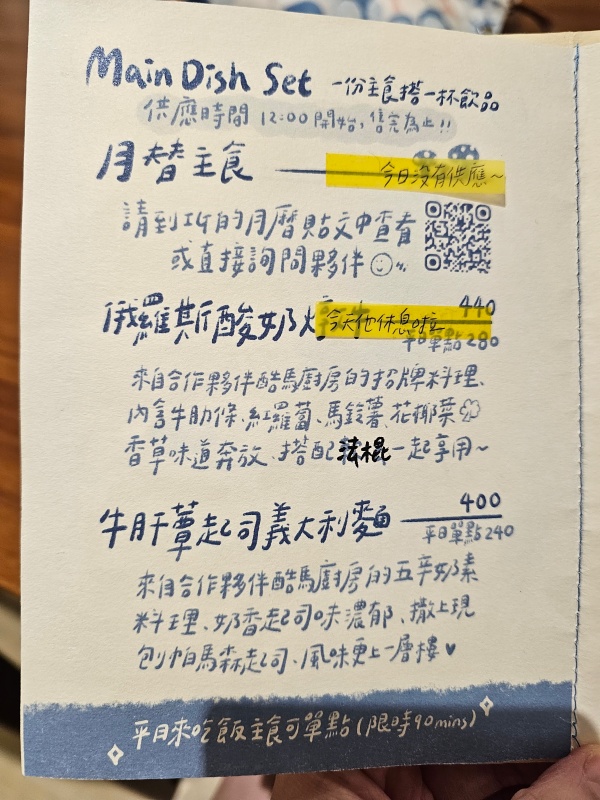 Main Dish Set 一份主食搭一杯飲品
供應時間 12:00開始,售完為止!!
月替主食 今日沒有供應~
請到IG的月曆貼文中查看
或直接詢問夥伴
俄羅斯酸奶 今天他休息啦 440
平日單點280
來自合作夥伴酷馬廚房的招牌料理、
內含牛肋條、紅蘿蔔、馬鈴薯、花椰菜
香草味道奔放、搭配法棍一起享用~
牛肝蕈起司義大利麵 400
平日單點240
來自合作夥伴酷馬廚房的五辛奶素
料理、奶香起司味濃郁、撒上現
刨帕馬森起司、風味更上一層樓♥
平日來吃飯主食可單點(限時90mins)